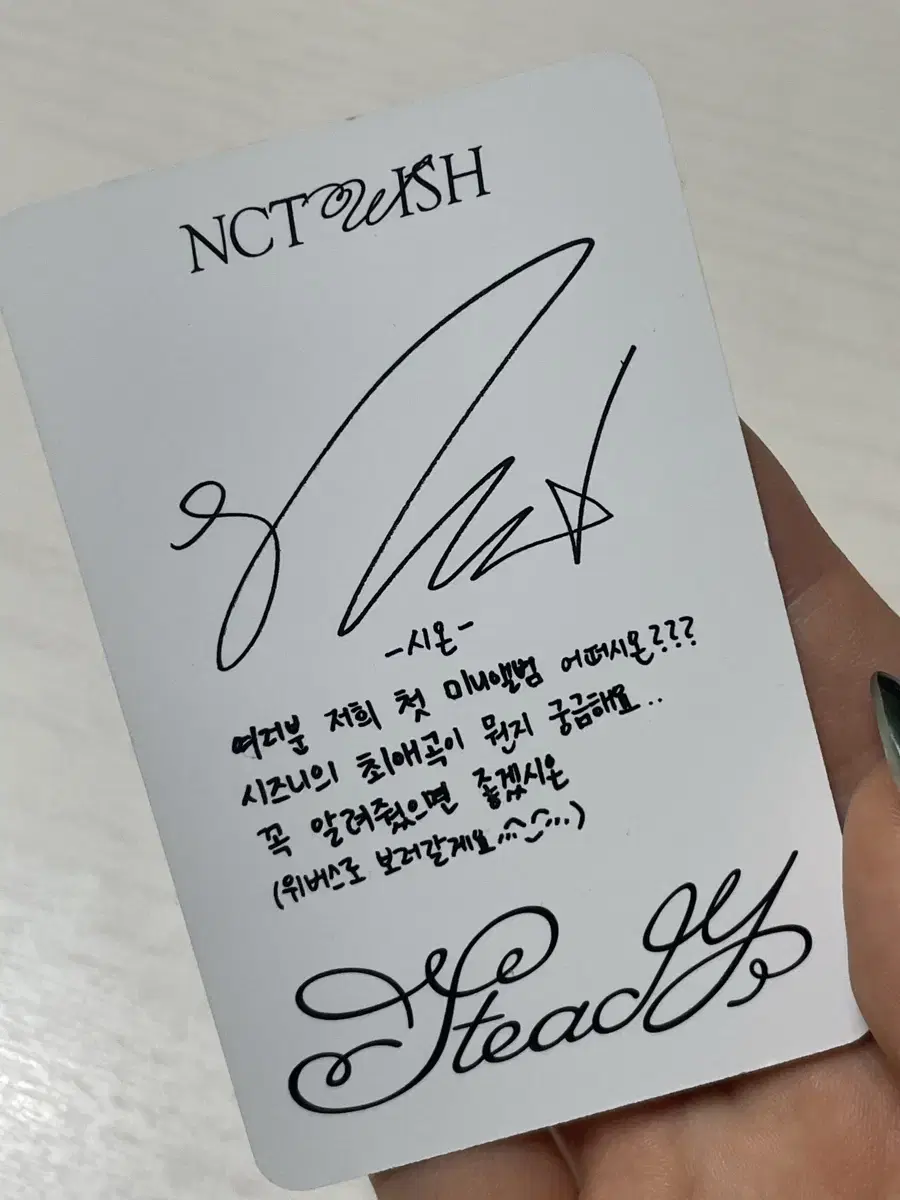 NCT WISH
-시온-
여러분 저희 첫 미니앨범 어떠시온???
시즈니의 최애곡이 뭔지 궁금해요..
꼭 알려줬으면 좋겠시온
(위버스로 보러갈게요...^‿^...)
Steady